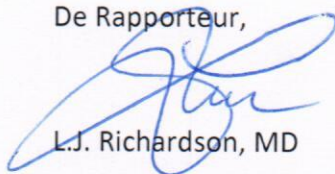 De Rapporteur,
L.J. Richardson, MD